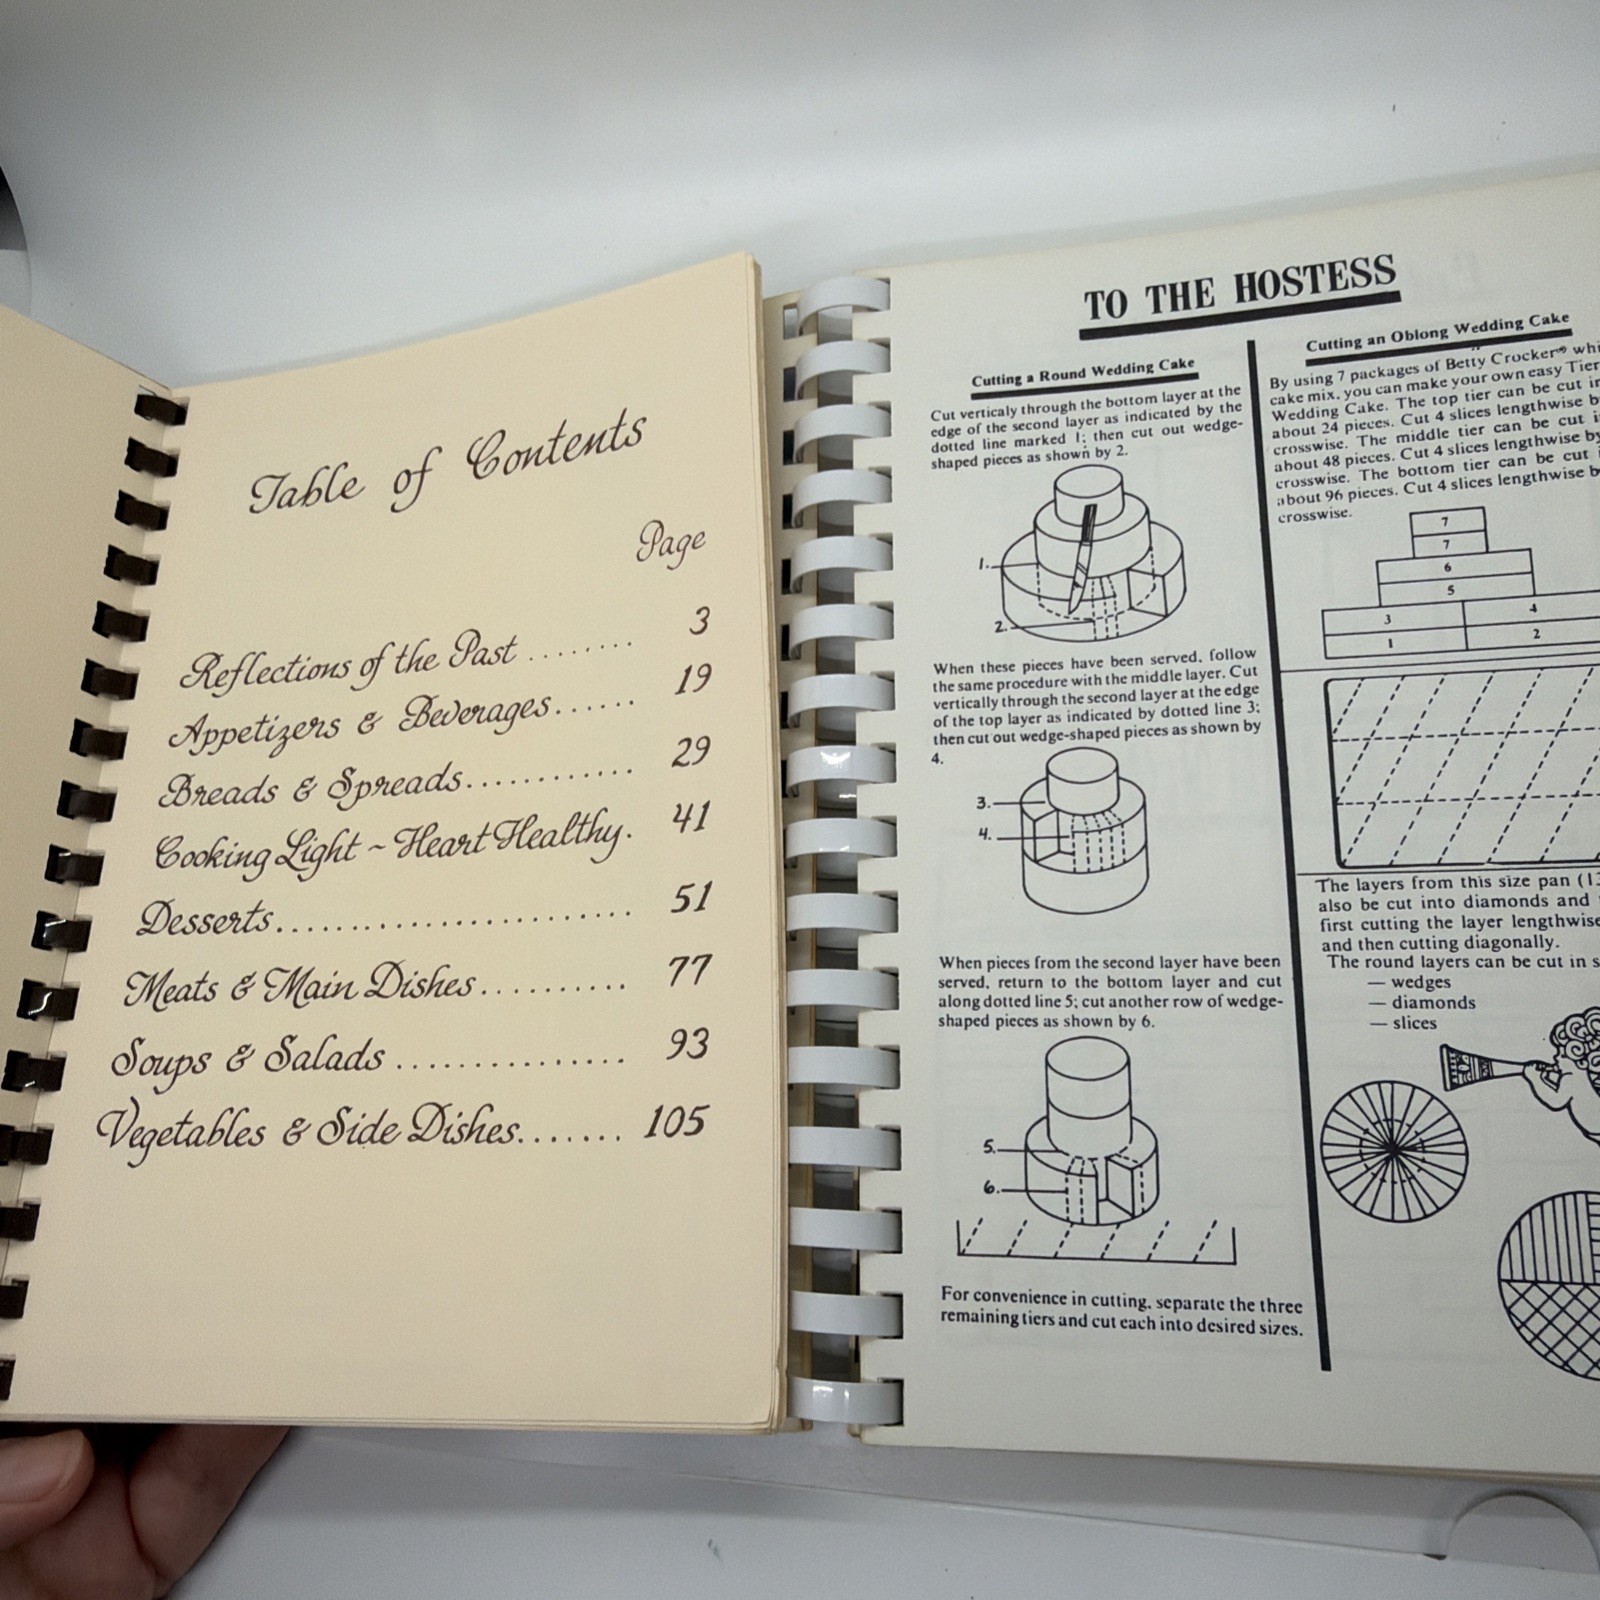 Table of Contents
Page
Reflections of the Past ........ 3
Appetizers & Beverages...... 19
Breads & Spreads............ 29
Cooking Light ~ Heart Healthy. 41
Desserts........................ 51
Meats & Main Dishes.......... 77
Soups & Salads ............... 93
Vegetables & Side Dishes....... 105
TO THE HOSTESS
Cutting a Round Wedding Cake
Cut verticaly through the bottom layer at the
edge of the second layer as indicated by the
dotted line marked 1; then cut out wedge-
shaped pieces as shown by 2.
1.
2.
When these pieces have been served, follow
the same procedure with the middle layer. Cut
vertically through the second layer at the edge
of the top layer as indicated by dotted line 3;
then cut out wedge-shaped pieces as shown by
4.
3.
4.
When pieces from the second layer have been
served, return to the bottom layer and cut
along dotted line 5; cut another row of wedge-
shaped pieces as shown by 6.
5.
6.
For convenience in cutting, separate the three
remaining tiers and cut each into desired sizes.
Cutting an Oblong Wedding Cake
By using 7 packages of Betty Crocker® whi
cake mix, you can make your own easy Tier
Wedding Cake. The top tier can be cut
about 24 pieces. Cut 4 slices lengthwise
crosswise. The middle tier can be cut
about 48 pieces. Cut 4 slices lengthwise by
crosswise. The bottom tier can be cut
about 96 pieces. Cut 4 slices lengthwise
crosswise.
7
7
6
5
3 4
1 2
The layers from this size pan (13
also be cut into diamonds and
first cutting the layer lengthwise
and then cutting diagonally.
The round layers can be cut in s
— wedges
— diamonds
— slices